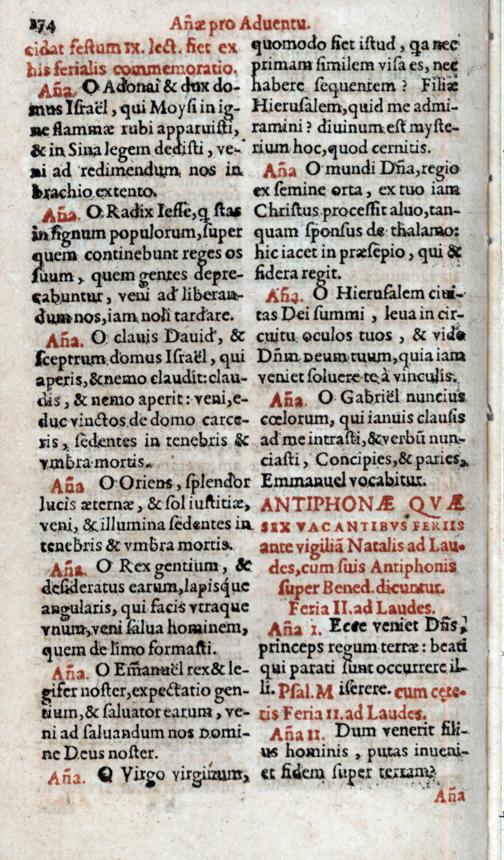 274 Añæ pro Aduentu.
cidat festum IX. lect. fiet ex
his ferialis commemoratio.
Aña. O Adonai & dux do-
mus Israël, qui Moysi in ig-
ne flammæ rubi apparuisti,
& in Sina legem dedisti, ve-
ni ad redimendum nos in
brachio extento.
Aña. O Radix Iesse, q stas
in signum populorum, super
quem continebunt reges os
suum, quem gentes depre-
cabuntur, veni ad liberan-
dum nos, iam noli tardare.
Aña. O clauis Dauid, &
sceptrum domus Israël, qui
aperis, & nemo claudit: clau-
dis, & nemo aperit: veni, e-
duc vinctos de domo carce-
ris, sedentes in tenebris &
vmbra mortis.
Aña O Oriens, splendor
lucis æternæ, & sol iustitiæ,
veni, & illumina sedentes in
tenebris & vmbra mortis.
Aña. O Rex gentium, &
desideratus earum, lapisque
angularis, qui facis vtraque
vnum, veni salua hominem,
quem de limo formasti.
Aña. O Emãnuël rex & le-
gifer noster, expectatio gen-
tium, & saluator earum, ve-
ni ad saluandum nos Domi-
ne Deus noster.
Aña. O Virgo virginum,
quomodo fiet istud, qa nec
primam similem visa es, nec
habere sequentem? Filiæ
Hierusalem, quid me admi-
ramini? diuinum est myste-
rium hoc, quod cernitis.
Aña O mundi Dña, regio
ex semine orta, ex tuo iam
Christus processit aluo, tan-
quam sponsus de thalamo:
hic iacet in præsepio, qui &
sidera regit.
Aña. O Hierusalem ciui-
tas Dei summi, leua in cir-
cuitu oculos tuos, & vide
Dñm Deum tuum, quia iam
veniet soluere te à vinculis.
Aña. O Gabriël nuncius
cœlorum, qui ianuis clausis
ad me intrasti, & verbũ nun-
ciasti, Concipies, & paries,
Emmanuel vocabitur.
ANTIPHONÆ QVÆ
SEX VACANTIBVS FERIIS
ante vigiliã Natalis ad Lau-
des, cum suis Antiphonis
super Bened. dicuntur.
Feria II. ad Laudes.
Aña I. Ecce veniet Dñs,
princeps regum terræ: beati
qui parati sunt occurrere il-
li. Psal. M iserere. cum cęte-
ris Feria II. ad Laudes.
Aña II. Dum venerit fili-
us hominis, putas inueni-
et fidem super terram?
Aña